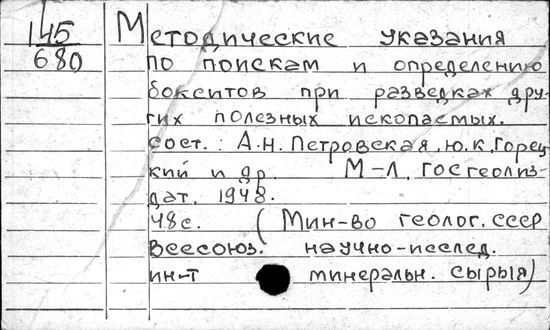 145
680
Методические указания
по поискам и определению
бокситов при разведках дру-
гих полезных ископаемых.
Сост.: А.Н. Петровская, Ю.К. Горец-
кий и др. М-Л, Госгеолиз-
дат. 1948.
48с. (Мин-во геолог. СССР
Всесоюз. научно-исслед.
ин-т минеральн. сырья)